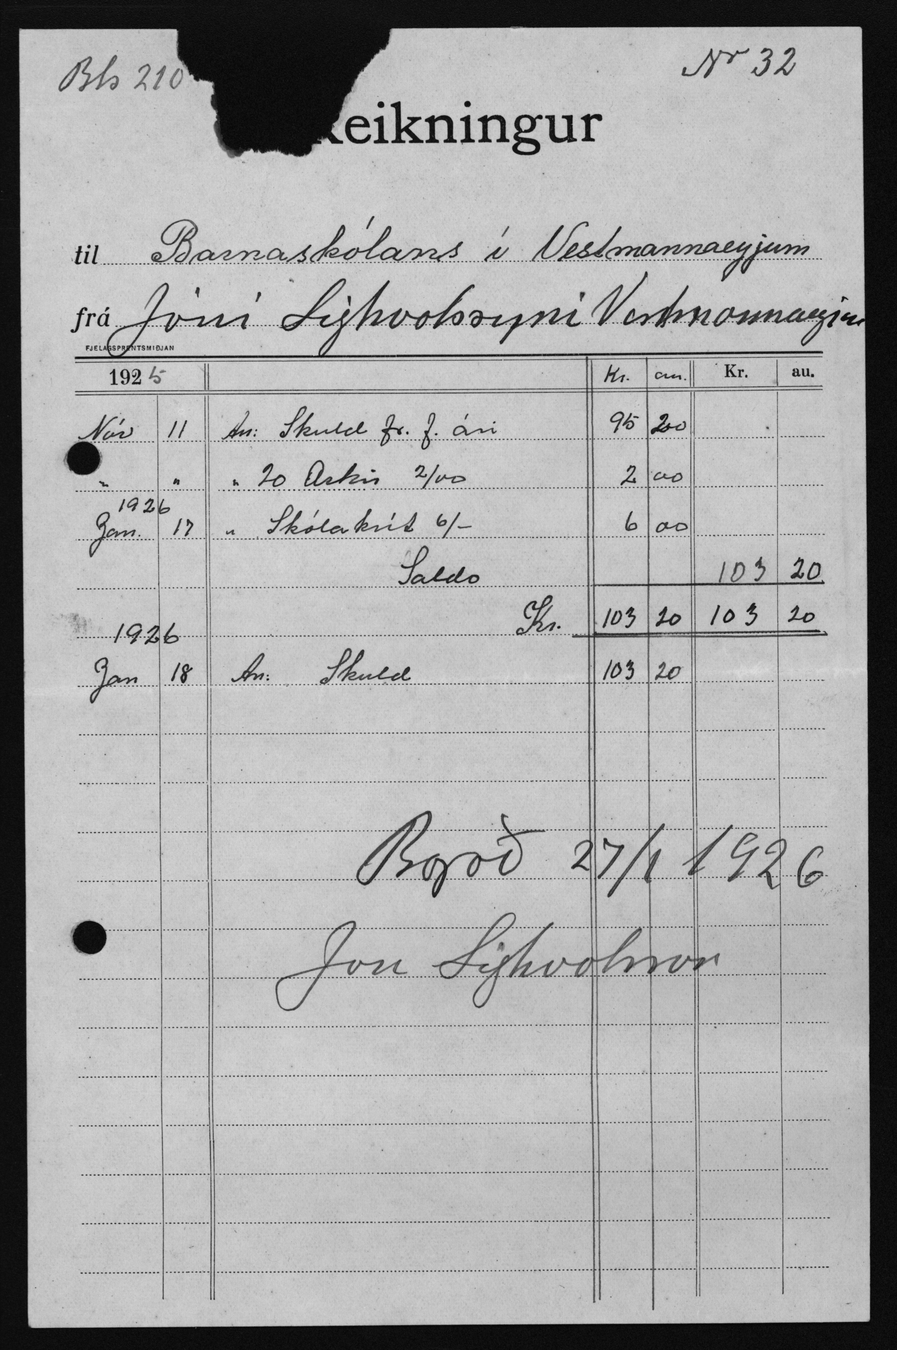 Bls 210
Nr 32
Reikningur
til Barnaskólans í Vestmannaeyjum
frá Jóni Sighvatssyni Vestmannaeyjum
FJELAGSPRENTSMIÐJAN
1925 Kr. au. Kr. au.
Nóv 11 An: Skuld fr. f. ári 95 20
" " " 20 Arkir 2/00 2 00
1926
Jan. 17 " Skólakrít 6/- 6 00
Saldo 103 20
Kr. 103 20 103 20
1926
Jan 18 An: Skuld 103 20
27/1 1926
Jón Sighvatsson